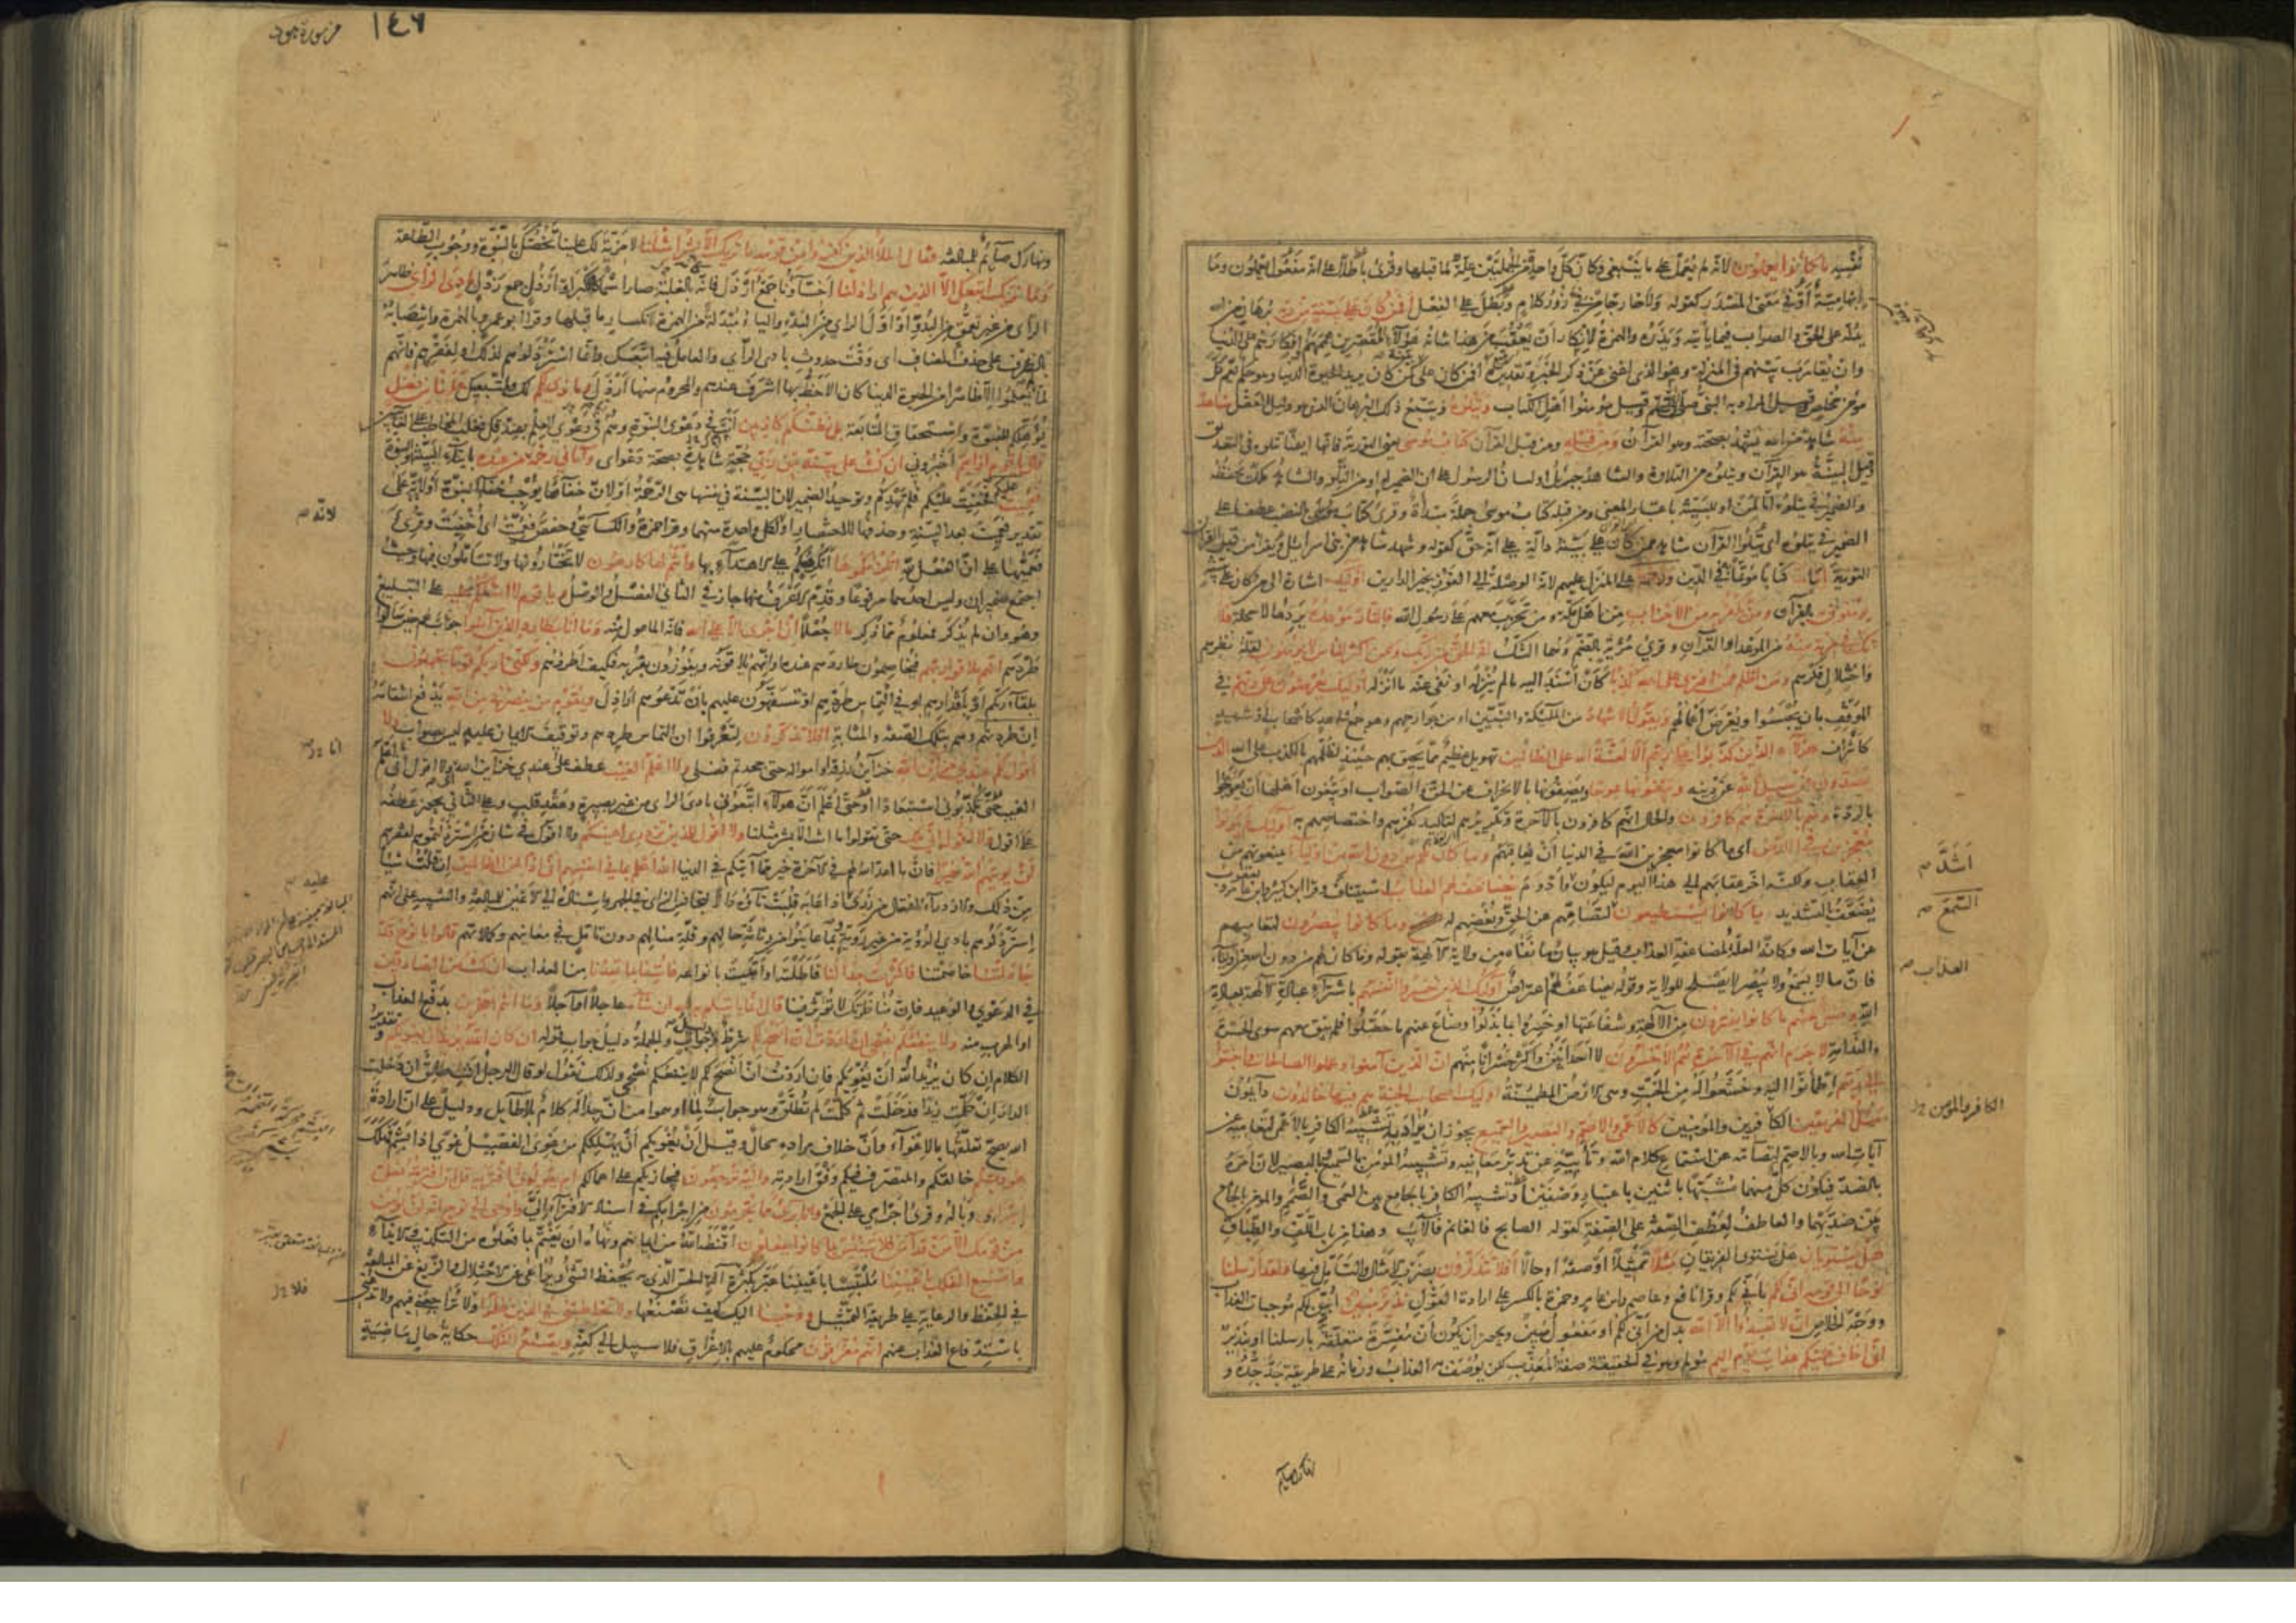 نفسه ما كانوا يعملون لانه لم يعمل على ما ينبغي وكان كل واحدة من الجملتين علة لما قبلها وقرئ باطلا على انه مفعول يعملون وما
ابهامية او في معنى المصدر كقوله ولا خارجا من في زور كلام وبطل على الفعل افمن كان على بينة من ربه برهان من الله
يدله على الحق والصواب فيما يأتيه ويذره والهمزة لانكار أن يعقب من هذا شأنه هؤلاء المقصرين هممهم وافكارهم على الدنيا
وان يقارب بينهم في المنزلة وهو الذي اغنى عن ذكر الخبر وتقديره افمن كان على بينة كمن كان يريد الحيوة الدنيا وهو حكم يعم كل
مؤمن مخلص وقيل المراد به النبي صلى الله عليه وسلم وقيل مؤمنوا اهل الكتاب ويتلوه ويتبع ذلك البرهان الذي هو دليل العقل شاهد
منه شاهد من الله يشهد بصحته وهو القرآن ومن قبله ومن قبل القرآن كتاب موسى يعني التورية فانها ايضا تتلوه في التصديق
وقيل البينة هو القرآن ويتلوه من التلاوة والشاهد جبريل او لسان الرسول على ان الضمير له او من التلو والشاهد ملك يحفظه
والضمير في يتلوه اما لمن او للبينة باعتبار المعنى ومن قبله كتاب موسى جملة مبتدأة وقرئ كتاب موسى بالنصب عطفا على
الضمير في يتلوه اي يتلوا القرآن شاهد ممن كان على بينة دالة على انه حق كقوله وشهد شاهد من بني اسرائيل ويقرأ من قبل القرآن
التورية اماما كتابا مؤتما به في الدين ورحمة على المنزل عليهم لانه الوصلة الى الفوز بخير الدارين اولئك اشارة الى من كان على بينة
يؤمنون به بالقرآن ومن يكفر به من الاحزاب من اهل مكة ومن تحزب معهم على رسول الله فالنار موعده يردها لا محالة فلا
تك في مرية منه من الموعد او القرآن وقرئ مرية بالضم وهما الشك انه الحق من ربك ولكن اكثر الناس لا يؤمنون لقلة نظرهم
واختلال فكرهم ومن اظلم ممن افترى على الله كذبا كأن أسند اليه ما لم ينزله او نفى عنه ما انزله اولئك يعرضون على ربهم في
الموقف بان يحبسوا ويعرض اعمالهم ويقول الاشهاد من الملائكة والنبيين او من جوارحهم وهو جمع شاهد كأصحاب او شهيد
كأشراف هؤلاء الذين كذبوا على ربهم ألا لعنة الله على الظالمين تهويل عظيم مما يحيق بهم حينئذ لظلمهم بالكذب على الله الذين
يصدون عن سبيل الله عن دينه ويبغونها عوجا ويصفونها بالانحراف عن الحق والصواب او يبغون اهلها ان يعوجوا
بالردة وهم بالآخرة هم كافرون والحال انهم كافرون بالآخرة وتكريرهم لتأكيد كفرهم واختصاصهم به اولئك لم يكونوا
معجزين في الارض اي ما كانوا معجزين الله في الدنيا ان يعاقبهم وما كان لهم من دون الله من اولياء يمنعونهم من
العقاب ولكنه اخر عقابهم الى هذا اليوم ليكون وادوم يضاعف لهم العذاب استيناف وقرأ ابن كثير وابن عامر ويعقوب
يضعف بالتشديد ما كانوا يستطيعون لتصامهم عن الحق وبغضهم له وما كانوا يبصرون لتعاميهم
عن آيات الله وكأنه العلة لمضاعفة العذاب وقيل هو بيان ما نفاه من ولاية الآلهة بقوله وما كان لهم من دون الله من اولياء
فان ما لا يسمع ولا يبصر لا يصلح للولاية وقوله يضاعف لهم اعتراض اولئك الذين خسروا انفسهم باشتراء عبادة الآلهة بعبادة
الله وضل عنهم ما كانوا يفترون من الآلهة وشفاعتها او خسروا بما بدلوا وضاع عنهم ما حصلوا فلم يبق معهم سوى الحسرة
والندامة لا جرم انهم في الآخرة هم الاخسرون لا احد ابين واكثر خسرانا منهم ان الذين آمنوا وعملوا الصالحات واخبتوا
الى ربهم اطمأنوا اليه وخشعوا له من الخبت وهي الارض المطمئنة اولئك اصحاب الجنة هم فيها خالدون دائمون
مثل الفريقين الكافرين والمؤمنين كالاعمى والاصم والبصير والسميع يجوز ان يراد به تشبيه الكافر بالاعمى لتعاميه عن
آيات الله وبالاصم لتصامه عن استماع كلام الله وتأبيه عن تدبر معانيه وتشبيه المؤمن بالسميع والبصير لان امره
بالضد فيكون كل منهما مشبها باثنين باعتبار وصفين او تشبيه الكافر بالجامع بين العمى والصمم والمؤمن بالجامع
بين ضديهما والعاطف لعطف الصفة على الصفة كقوله الصابح فالغانم فالآيب وهذا من باب اللف والطباق
هل يستويان هل يستوي الفريقان مثلا تمثيلا او صفة او حالا افلا تذكرون بضرب الامثال والتأمل فيها ولقد ارسلنا
نوحا الى قومه اني لكم باني لكم وقرأ نافع وعاصم وابن عامر وحمزة بالكسر على ارادة القول نذير مبين ابين لكم موجبات العذاب
ووجه الخلاص ان لا تعبدوا الا الله بدل من اني لكم او مفعول مبين ويجوز ان يكون أن مفسرة متعلقة بارسلنا او نذير
اني اخاف عليكم عذاب يوم اليم مؤلم وهو في الحقيقة صفة المعذب لكن يوصف به العذاب وزمانه على طريقة جد جده و
اشد
السمع
العذاب
الكافر والمؤمن
نهاره صائم
١٤٦
من سورة هود
ونهاره صائم للمبالغة فقال الملأ الذين كفروا من قومه ما نريك الا بشرا مثلنا لا مزية لك علينا تخصك بالنبوة ووجوب الطاعة
وما نريك اتبعك الا الذين هم اراذلنا اخساؤنا جمع ارذل فانه بالغلبة صار مثل الاسم كالاكبر او ارذل جمع رذل بادي الرأي ظاهر
الرأي من غير تعمق من البدو او اول الرأي من البدء والياء مبدلة من الهمزة لانكسار ما قبلها وقرأ ابو عمرو بالهمزة وانتصابه
بالظرف على حذف المضاف اي وقت حدوث بادي الرأي والعامل فيه اتبعك وانما استرذلوهم لذلك او لفقرهم فانهم
لما لم يعلموا الا ظاهرا من الحيوة الدنيا كان الاحظ بها اشرف عندهم والمحروم منها ارذل وما نرى لكم لك ولمتبعيك علينا من فضل
يؤهلكم للنبوة واستحقاق المتابعة بل نظنكم كاذبين انت في دعوى النبوة وهم في دعوى العلم بصدقك فغلب المخاطب على الغائبين
قال يا قوم ارأيتم اخبروني ان كنت على بينة من ربي حجة شاهدة بصحة دعواي وآتاني رحمة من عنده بايتاء البينة او النبوة
فعميت عليكم فخفيت عليكم فلم تهدكم وتوحيد الضمير لان البينة في نفسها هي الرحمة او لان خفاءها يوجب خفاء النبوة او على
تقدير فعميت بعد البينة وحذفها للاختصار او لكل واحدة منهما وقرأ حمزة والكسائي وحفص فعميت اي اخفيت وقرئ
فعماها على ان الفعل لله انلزمكموها انكرهكم على الاهتداء بها وانتم لها كارهون لا تختارونها ولا تتأملون فيها وحيث
اجتمع ضميران وليس احدهما مرفوعا وقدم الاعرف منهما جاز في الثاني الفصل والوصل يا قوم لا اسئلكم عليه على التبليغ
وهو وان لم يذكر فمعلوم مما ذكر مالا جعلا ان اجري الا على الله فانه المأمول منه وما انا بطارد الذين آمنوا جواب لهم حين سألوا
طردهم انهم ملاقوا ربهم فيخاصمون طاردهم عنده او انهم يلاقونه ويفوزون بقربه فكيف اطردهم ولكني اريكم قوما تجهلون
بلقاء ربكم او باقدارهم او في التماس طردهم او تتسفهون عليهم بان تدعوهم اراذل ويا قوم من ينصرني من الله بدفع انتقامه
ان طردتهم وهم بتلك الصفة والمثابة افلا تذكرون لتعرفوا ان التماس طردهم وتوقيف الايمان عليه ليس بصواب ولا
اقول لكم عندي خزائن الله خزائن رزقه او امواله حتى جحدتم فضلي ولا اعلم الغيب عطف على عندي خزائن الله اي ولا اقول لكم انا اعلم
الغيب حتى تكذبوني استبعادا او حتى اعلم ان هؤلاء اتبعوني بادي الرأي من غير بصيرة وعقد قلب وعلى الثاني يجوز عطفه
على اقول ولا اقول اني ملك حتى تقولوا ما انت الا بشر مثلنا ولا اقول للذين تزدري اعينكم ولا اقول في شأن من استرذلتموهم لفقرهم
لن يؤتيهم الله خيرا فان ما اعد الله لهم في الآخرة خير مما آتاكم في الدنيا الله اعلم بما في انفسهم اني اذا لمن الظالمين ان قلت شيئا
من ذلك والازدراء افتعال من زرى اذا عابه قلبت تاؤه دالا لتجانس الزاي في الجهر واسناده الى الاعين للمبالغة والتنبيه على انهم
استرذلوهم بادي الرؤية من غير روية بما عاينوا من رثاثة حالهم وقلة منالهم دون تأمل في معانيهم وكمالاتهم قالوا يا نوح قد
جادلتنا خاصمتنا فاكثرت جدالنا فاطلته او اتيت بانواعه فأتنا بما تعدنا من العذاب ان كنت من الصادقين
في الدعوى والوعيد فان مناظرتك لا تؤثر فينا قال انما يأتيكم به الله ان شاء عاجلا او آجلا وما انتم بمعجزين بدفع العذاب
او الهرب منه ولا ينفعكم نصحي ان اردت ان انصح لكم شرط ودليل جواب والجملة دليل جواب قوله ان كان الله يريد ان يغويكم وتقدير
الكلام ان كان يريد الله ان يغويكم فان اردت ان انصح لكم لا ينفعكم نصحي ولذلك نقول لو قال الرجل انت طالق ان دخلت
الدار ان كلمت زيدا فدخلت ثم كلمت لم تطلق وهو جواب لما اوهموا من ان جداله كلام بلا طائل ودليل على ان ارادة
الله يصح تعلقها بالاغواء وان خلاف مراده محال وقيل ان يغويكم ان يهلككم من غوي الفصيل غوى اذا بشم فهلك
هو ربكم خالقكم والمتصرف فيكم وفق ارادته واليه ترجعون فيجازيكم على اعمالكم ام يقولون افتريه قل ان افتريته فعلي
اجرامي وباله وقرئ اجرامي على الجمع وانا بريء مما تجرمون من اجرامكم في اسناد الافتراء الي واوحي الى نوح انه لن يؤمن
من قومك الا من قد آمن فلا تبتئس بما كانوا يفعلون اقنطه الله من ايمانهم ونهاه ان يغتم بما فعلوه من التكذيب والايذاء
واصنع الفلك باعيننا ملتبسا باعيننا عبر بكثرة آلة الحس الذي به يحفظ الشيء ويراعى عن الاختلال والزيغ عن المبالغة
في الحفظ والرعاية على طريقة التمثيل ووحينا اليك كيف تصنعها ولا تخاطبني في الذين ظلموا ولا تراجعني فيهم ولا تدعني
باستدفاع العذاب عنهم انهم مغرقون محكوم عليهم بالاغراق فلا سبيل الى كفه ويصنع الفلك حكاية حال ماضية
لانه
انا
عليه
فلا